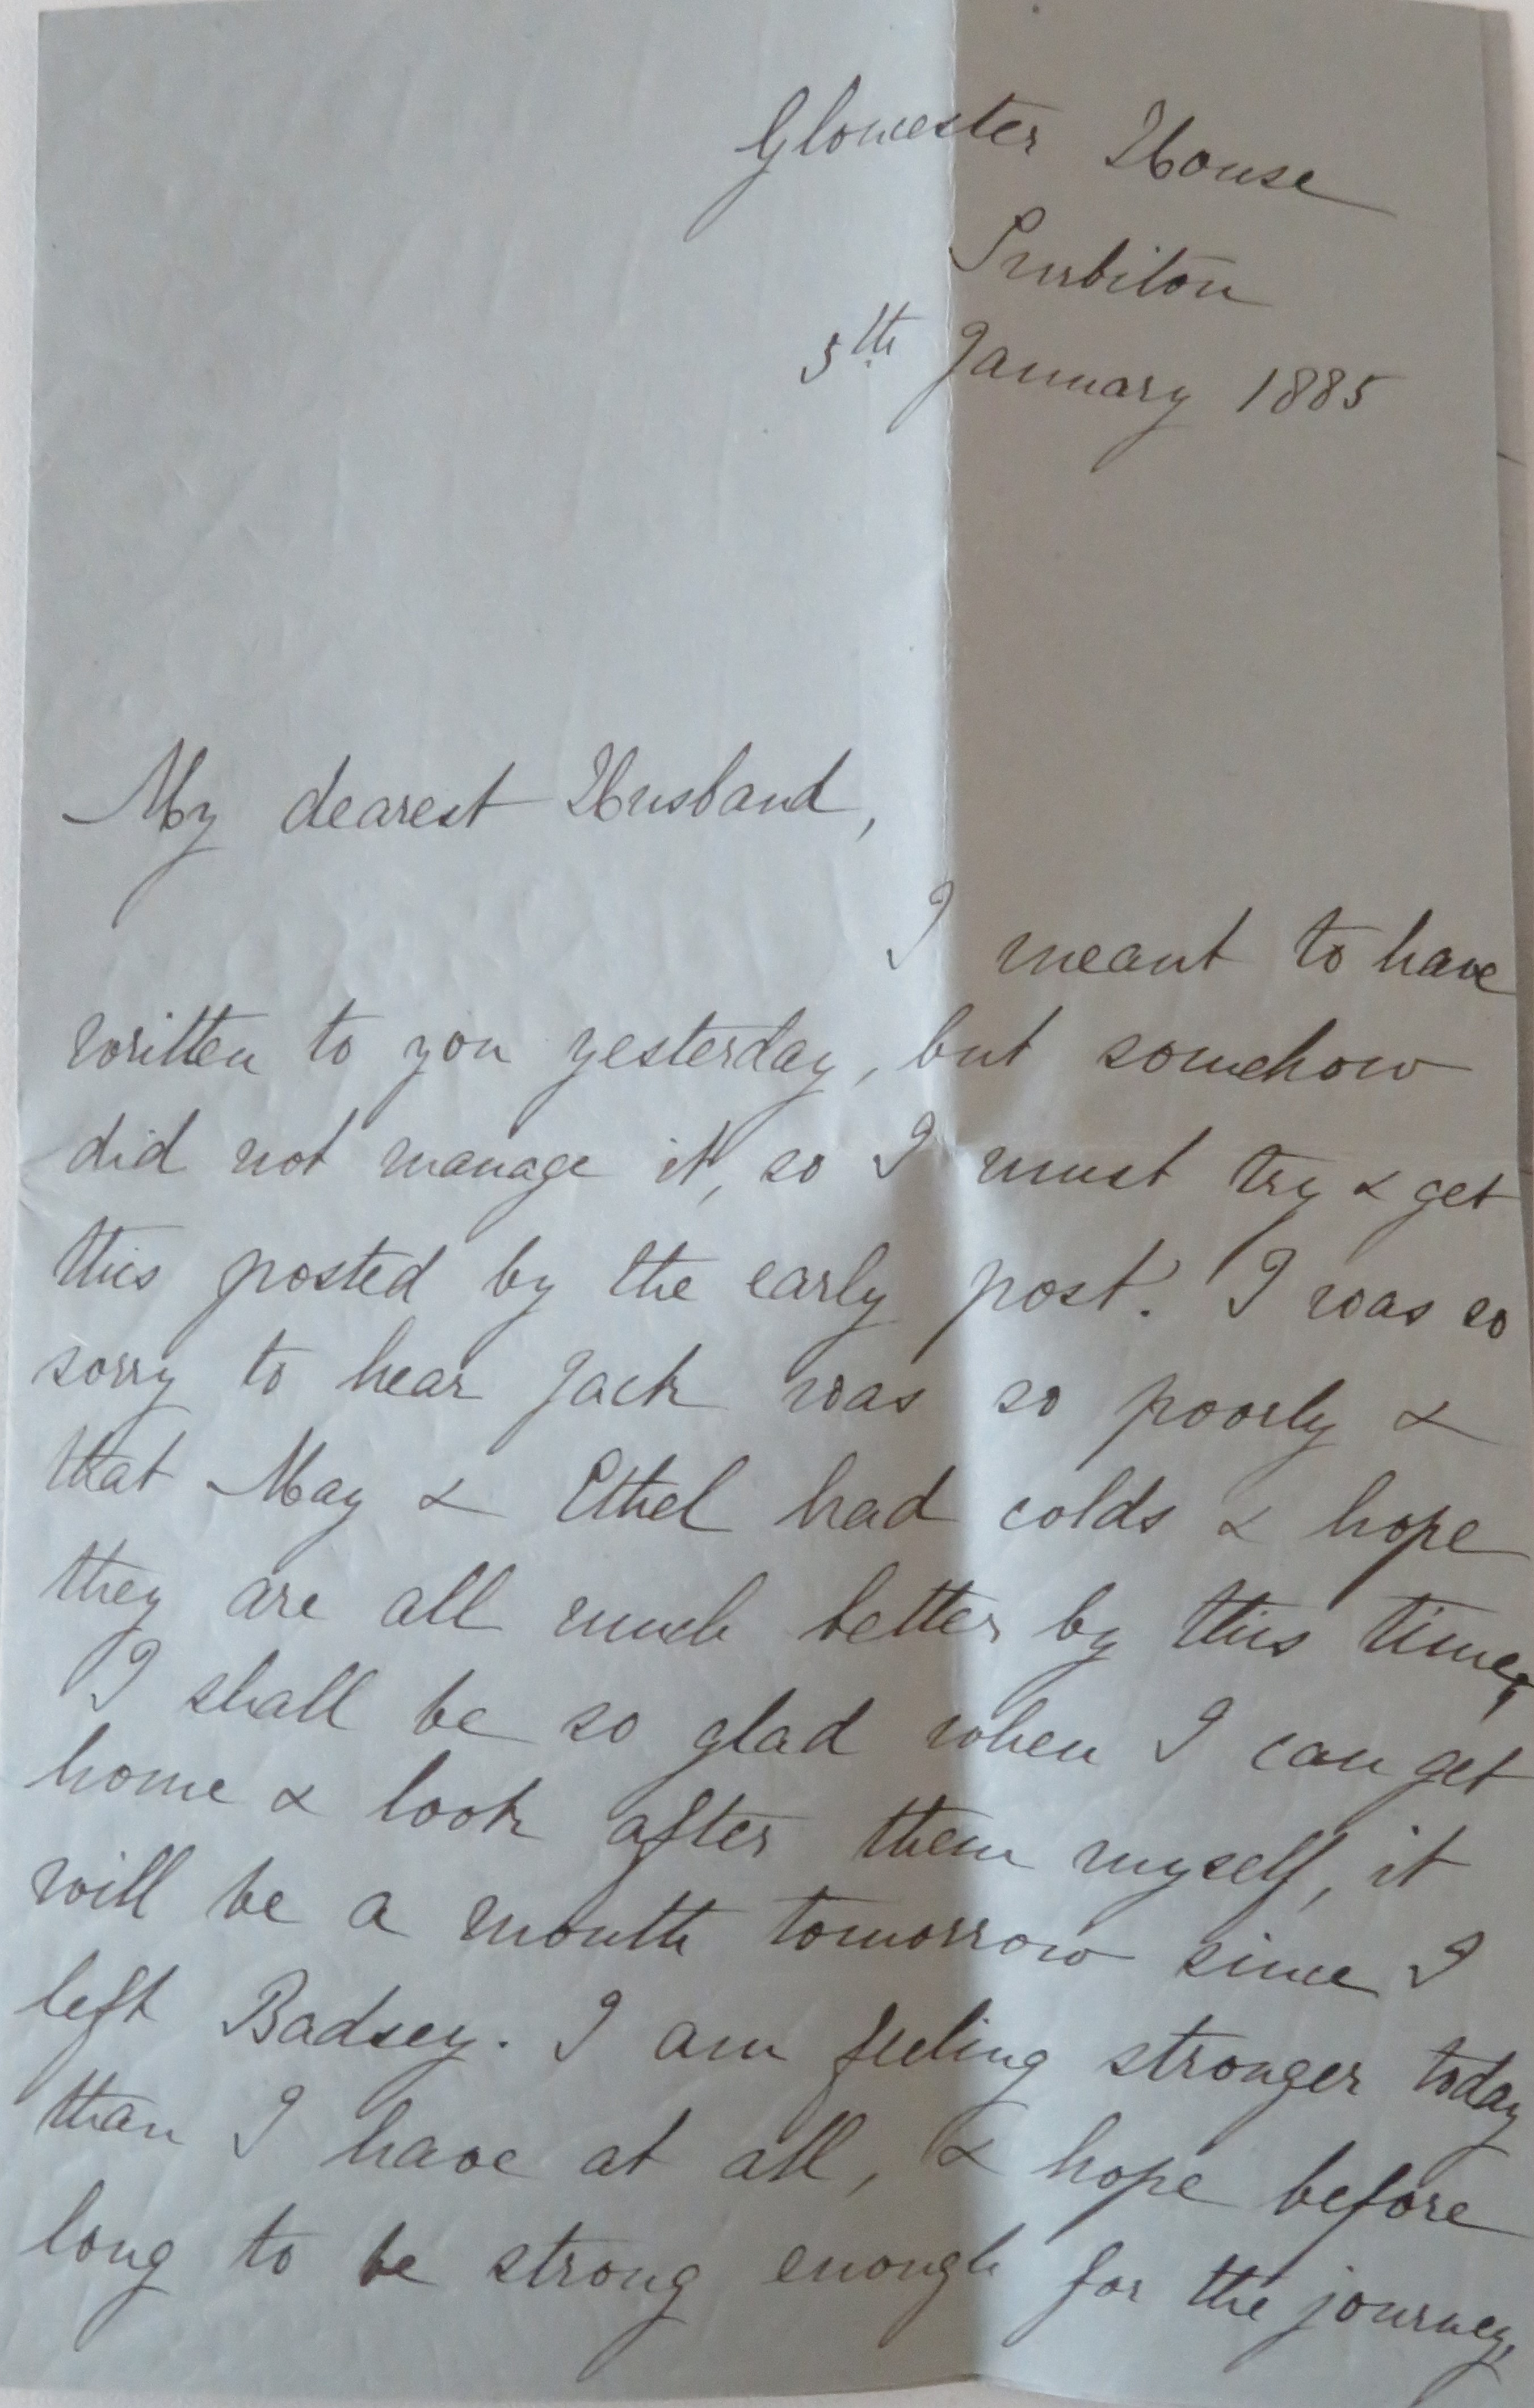 Gloucester House
Surbiton
5th January 1885
My dearest Husband,
I meant to have
written to you yesterday, but somehow
did not manage it, so I must try & get
this posted by the early post. I was so
sorry to hear Jack was so poorly &
that May & Ethel had colds & hope
they are all much better by this time,
I shall be so glad when I can get
home & look after them myself, it
will be a month tomorrow since I
left Badsey. I am feeling stronger today
than I have at all, & hope before
long to be strong enough for the journey,